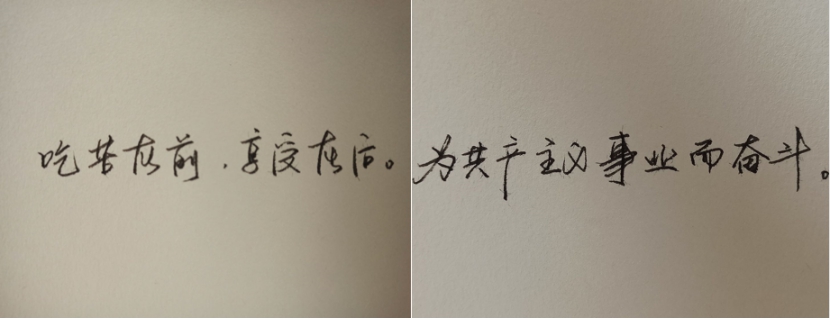 吃苦在前，享受在后。
为共产主义事业而奋斗。